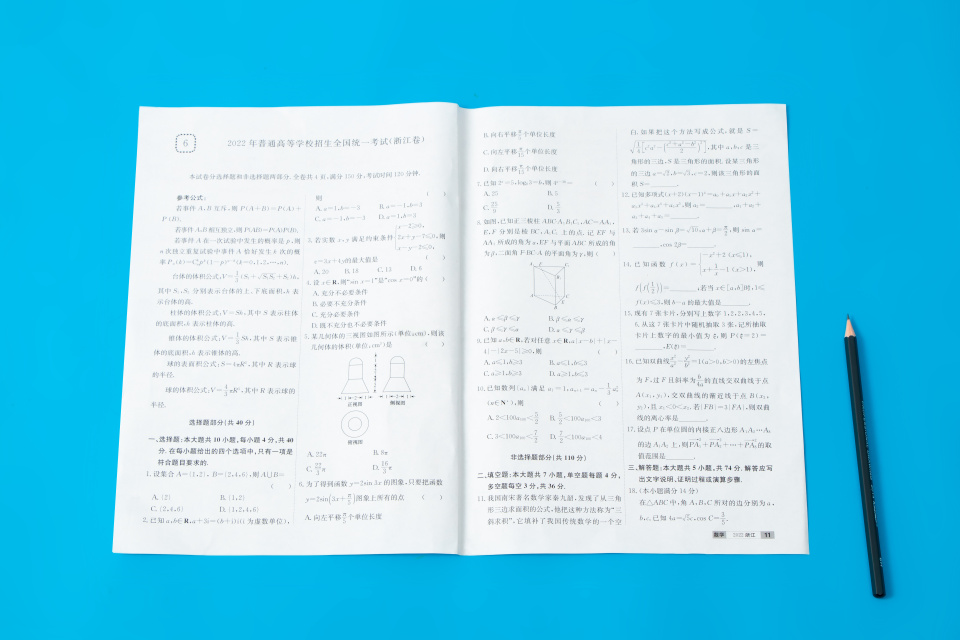 6
2022年普通高等学校招生全国统一考试(浙江卷)
本试卷分选择题和非选择题两部分,全卷共4页,满分150分,考试时间120分钟.
参考公式:
若事件A,B互斥,则P(A+B)=P(A)+
P(B).
若事件A,B相互独立,则P(AB)=P(A)P(B).
若事件A在一次试验中发生的概率是p,则
n次独立重复试验中事件A恰好发生k次的概
率
台体的体积公式:
其中S₁,S₂分别表示台体的上、下底面积,h表
示台体的高.
柱体的体积公式:V=Sh,其中S表示柱体
的底面积,h表示柱体的高.
锥体的体积公式:V=1/3 Sh,其中S表示锥
体的底面积,h表示锥体的高.
球的表面积公式:S=4πR²,其中R表示球
的半径.
球的体积公式:V=4/3 πR³,其中R表示球的
半径.
选择题部分(共40分)
一、选择题:本大题共10小题,每小题4分,共40
分.在每小题给出的四个选项中,只有一项是
符合题目要求的.
1.设集合A={1,2},B={2,4,6},则A∪B=
( )
A.{2} B.{1,2}
C.{2,4,6} D.{1,2,4,6}
2.已知a,b∈R,a+3i=(b+i)i(i为虚数单位),
则 ( )
A.a=1,b=-3 B.a=-1,b=3
C.a=-1,b=-3 D.a=1,b=3
3.若实数x,y满足约束条件 x-2≥0, 2x+y-7≤0, x-y-2≤0, 则
z=3x+4y的最大值是 ( )
A.20 B.18 C.13 D.6
4.设x∈R,则“sin x=1”是“cos x=0”的 ( )
A.充分不必要条件
B.必要不充分条件
C.充分必要条件
D.既不充分也不必要条件
5.某几何体的三视图如图所示(单位:cm),则该
几何体的体积(单位:cm³)是 ( )
正视图 侧视图
俯视图
A.22π B.8π
C.22/3 π D.16/3 π
6.为了得到函数y=2sin 3x的图象,只要把函数
y=2sin(3x+π/5)图象上所有的点 ( )
A.向左平移π/5个单位长度
B.向右平移π/5个单位长度
C.向左平移π/15个单位长度
D.向右平移π/15个单位长度
7.已知 ( )
A.25 B.5
C.25/9 D.5/3
8.如图,已知正三棱柱ABC-A₁B₁C₁,AC=AA₁,
E,F分别是棱BC,A₁C₁上的点.记EF与
AA₁所成的角为α,EF与平面ABC所成的角
为β,二面角F-BC-A的平面角为γ,则 ( )
A.α≤β≤γ B.β≤α≤γ
C.β≤γ≤α D.α≤γ≤β
9.已知a,b∈R,若对任意x∈R,a|x-b|+|x-
4|-|2x-5|≥0,则 ( )
A.a≤1,b≥3 B.a≤1,b≤3
C.a≥1,b≥3 D.a≥1,b≤3
10.已知数列{aₙ}满足a₁=1,aₙ₊₁=aₙ-1/3 aₙ²
(n∈N*),则 ( )
A.2<100a₁₀₀<5/2 B.5/2<100a₁₀₀<3
C.3<100a₁₀₀<7/2 D.7/2<100a₁₀₀<4
非选择题部分(共110分)
二、填空题:本大题共7小题,单空题每题4分,
多空题每空3分,共36分.
11.我国南宋著名数学家秦九韶,发现了从三角
形三边求面积的公式,他把这种方法称为“三
斜求积”,它填补了我国传统数学的一个空
白.如果把这个方法写成公式,就是S=
√(1/4[c²a²-((c²+a²-b²)/2)²]),其中a,b,c是三
角形的三边,S是三角形的面积.设某三角形
的三边a=√2,b=√3,c=2,则该三角形的面
积S=______.
12.已知多项式(x+2)(x-1)⁴=a₀+a₁x+a₂x²+
a₃x³+a₄x⁴+a₅x⁵,则a₂=______,a₁+a₂+
a₃+a₄+a₅=______.
13.若3sin α-sin β=√10,α+β=π/2,则sin α=
______,cos 2β=______.
14.已知函数f(x)= -x²+2(x≤1), x+1/x-1(x>1), 则
f(f(1/2))=______;若当x∈[a,b]时,1≤
f(x)≤3,则b-a的最大值是______.
15.现有7张卡片,分别写上数字1,2,2,3,4,5,
6.从这7张卡片中随机抽取3张,记所抽取
卡片上数字的最小值为ξ,则P(ξ=2)=
______,E(ξ)=______.
16.已知双曲线x²/a²-y²/b²=1(a>0,b>0)的左焦点
为F,过F且斜率为b/4a的直线交双曲线于点
A(x₁,y₁),交双曲线的渐近线于点B(x₂,
y₂),且x₁<0<x₂.若|FB|=3|FA|,则双曲
线的离心率是______.
17.设点P在单位圆的内接正八边形A₁A₂…A₈
的边A₁A₂上,则PA₁²+PA₂²+…+PA₈²的取
值范围是______.
三、解答题:本大题共5小题,共74分.解答应写
出文字说明、证明过程或演算步骤.
18.(本小题满分14分)
在△ABC中,角A,B,C所对的边分别为a,
b,c.已知4a=√5c,cos C=3/5.
数学 2022 浙江 11